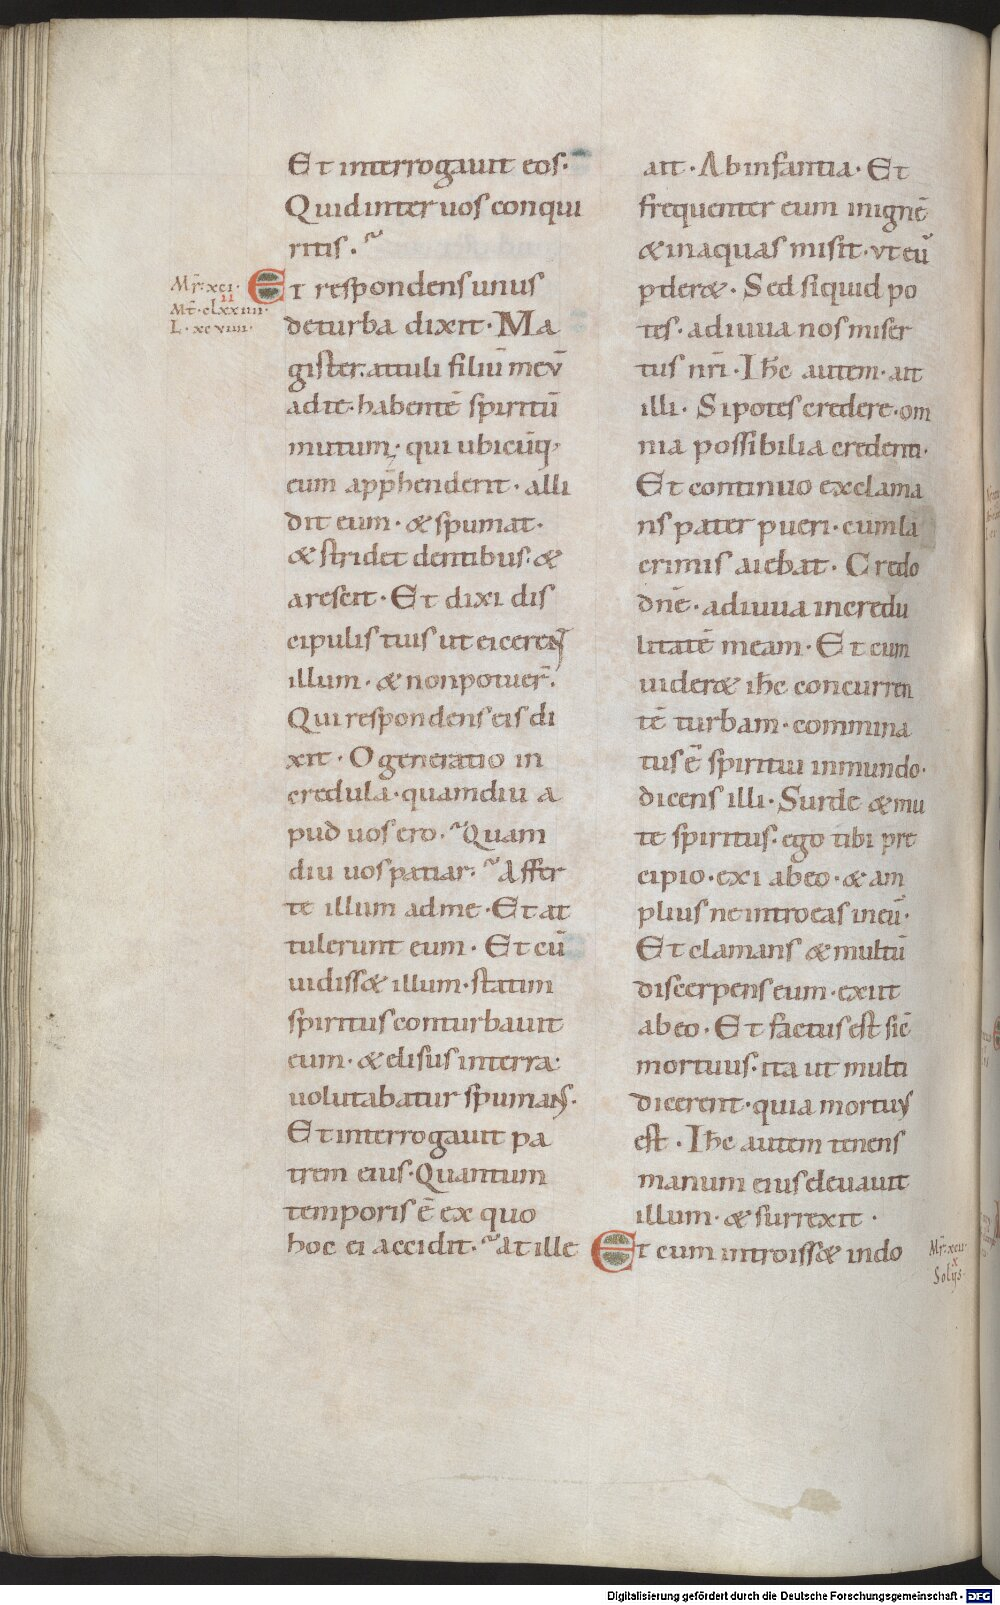 Et interrogauit eos·
Quid inter uos conqui
ritis·
Mr̄·xci· Et respondens unus
II
Mt̄·clxxiiii·
L·xcviiii· de turba dixit· Ma
gister· attuli filiū meū
ad te· habentē spiritū
mutum· qui ubicūq;
eum app̄henderit· alli
dit eum· & spumat·
& stridet dentibus· &
arescit· Et dixi dis
cipulis tuis ut eicerent
illum· & non potuer̄·
Qui respondens eis di
xit· O generatio in
credula· quamdiu a
pud uos ero· Quam
diu uos patiar· Affer
te illum ad me· Et at
tulerunt eum· Et cū
uidiss& illum· statim
spiritus conturbauit
eum· & elisus in terra
uolutabatur spumans·
Et interrogauit pa
trem eius· Quantum
temporis ē ex quo
hoc ei accidit· At ille
ait· Ab infantia· Et
frequenter eum in ignē
& in aquas misit· ut eū
ꝑder&· Sed si quid po
tes· adiuua nos miser
tus nr̄i· Ih̄c autem· ait
illi· Si potes credere· om
nia possibilia credenti·
Et continuo exclama
ns pater pueri· cum la
crimis aiebat· Credo
dn̄e· adiuua incredu
litatē meam· Et cum
uider& ih̄c concurren
tē turbam· commina
tus ē spiritui inmundo·
dicens illi· Surde & mu
te spiritus· ego tibi pre
cipio· exi ab eo· & am
plius ne introeas in eū·
Et clamans & multū
discerpens eum· exiit
ab eo· Et factus est sic̄
mortuus· ita ut multi
dicerent· quia mortuus
est· Ih̄c autem tenens
manum eius eleuauit
illum· & surrexit·
Et cum introiss& in do
Mr̄·xcii·
x
Solus·
Digitalisierung gefördert durch die Deutsche Forschungsgemeinschaft - DFG